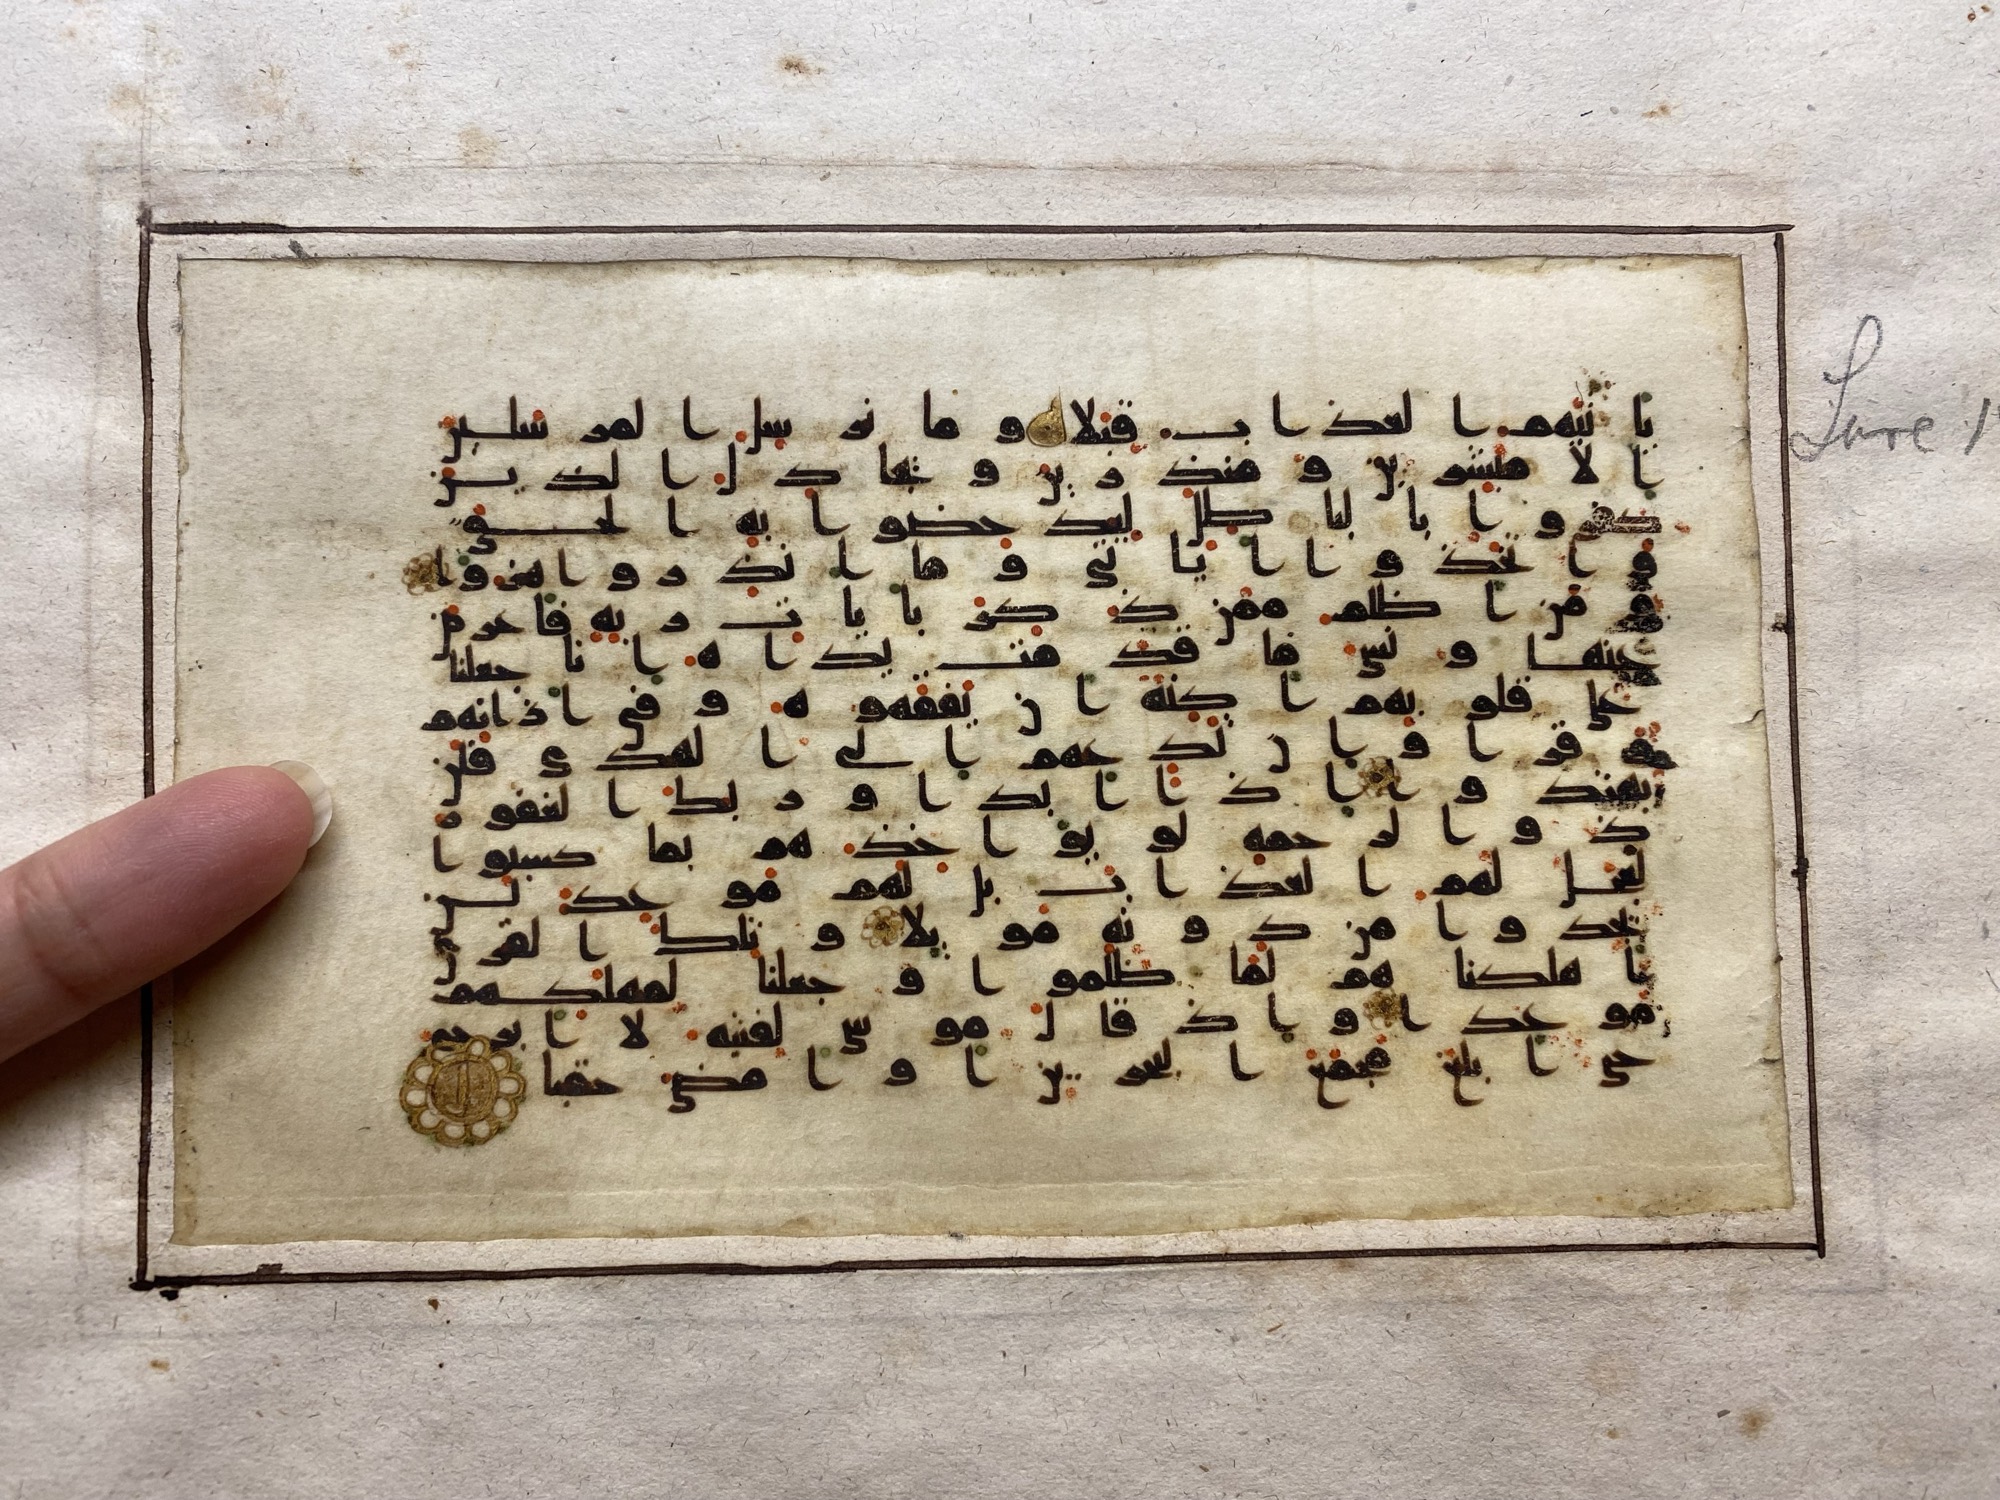 ياتيهم العذاب قبلا وما نرسل المرسلين
الا مبشرين ومنذرين ويجادل الذين
كفروا بالبطل ليدحضوا به الحق
واتخذوا ايتي وما انذروا هزوا
ومن اظلم ممن ذكر بايت ربه فاعرض
عنها ونسي ما قدمت يداه انا جعلنا
على قلوبهم اكنة ان يفقهوه وفي اذانهم
وقرا وان تدعهم الى الهدى فلن
يهتدوا اذا ابدا وربك الغفور
ذو الرحمة لو يواخذهم بما كسبوا
لعجل لهم العذاب بل لهم موعد لن
يجدوا من دونه مويلا وتلك القرى
اهلكنهم لما ظلموا وجعلنا لمهلكهم
موعدا واذ قال موسى لفتيه لا ابرح
حتى ابلغ مجمع البحرين او امضي حقبا
Sure